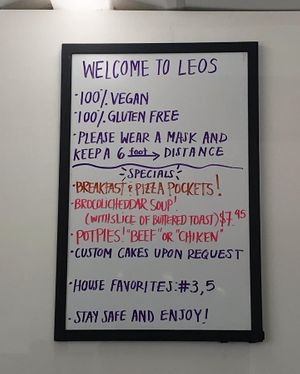 WELCOME TO LEOS
·100% VEGAN
·100% GLUTEN FREE
·PLEASE WEAR A MASK AND
KEEP A 6 foot DISTANCE
SPECIALS
·BREAKFAST & PIZZA POCKETS!
·BROCOLICHEDDAR SOUP!
(WITH SLICE OF BUTTERED TOAST) $7.95
·POTPIES! "BEEF" OR "CHIKEN"
·CUSTOM CAKES UPON REQUEST
·HOUSE FAVORITES: #3,5
·STAY SAFE AND ENJOY!